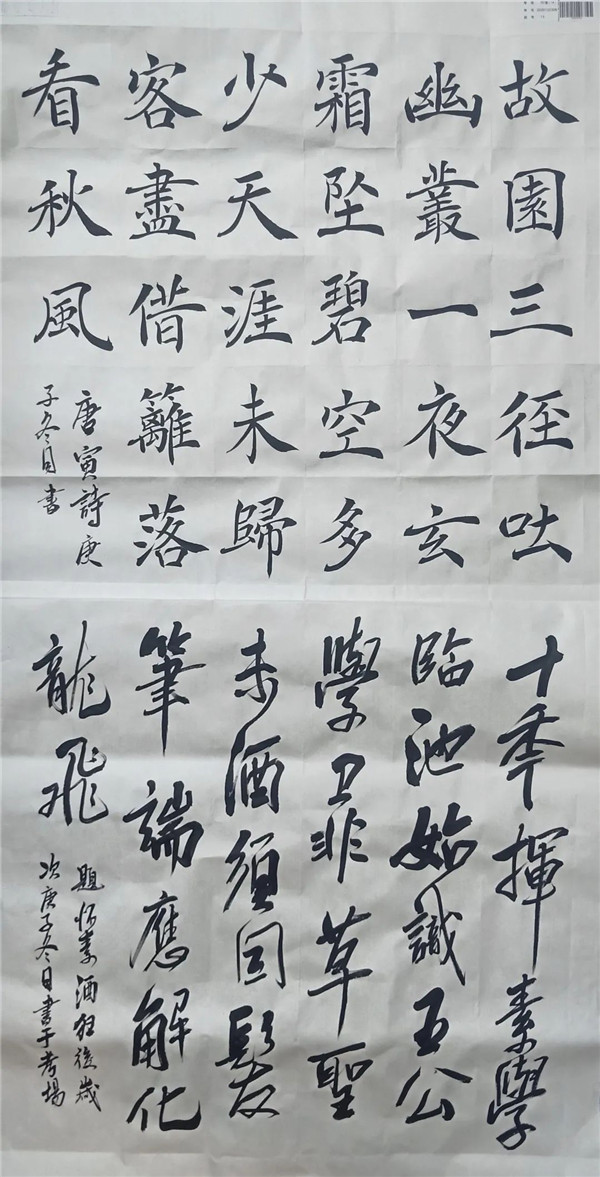 故園三径吐
幽叢一夜玄
霜墜碧空多
少天涯未歸
客盡借籬落
看秋風
唐寅詩庚
子冬日書
十年揮素學
臨池始識王公
學卫非草聖
未酒須因髮
筆端應解化
龍飛
題怀素酒狂後歲
次庚子冬日書于考場